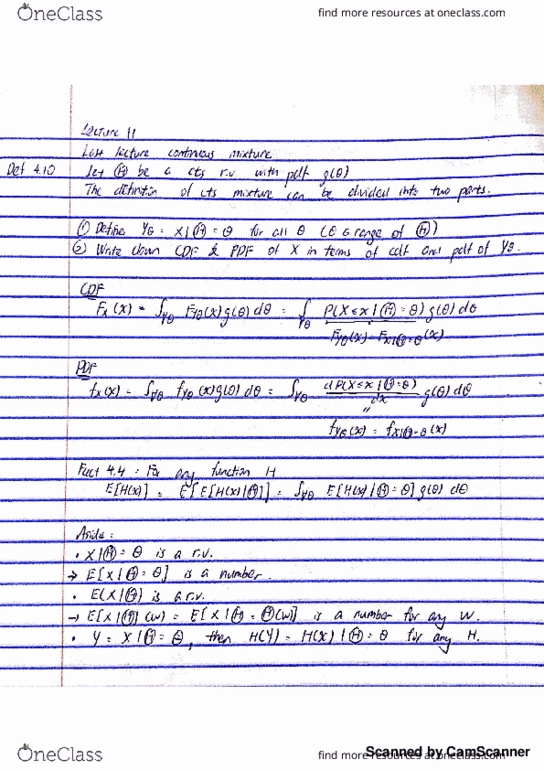 OneClass
find more resources at oneclass.com
Lecture 11
Last lecture continuous mixture
Def 4.10 Let Ⓗ be a cts r.v. with pdf g(θ)
The definition of cts mixture can be divided into two parts.
① Define Yθ = X|Ⓗ = θ for all θ (θ ∈ range of Ⓗ)
② Write down CDF & PDF of X in terms of cdf and pdf of Yθ.
CDF
Fx(x) = ∫∀θ FYθ(x)g(θ)dθ = ∫∀θ P(X≤x|Ⓗ=θ)g(θ)dθ
FYθ(x) = FX|Ⓗ=θ(x)
PDF
fx(x) = ∫∀θ fYθ(x)g(θ)dθ = ∫∀θ dP(X≤x|Ⓗ=θ)/dx g(θ)dθ
"
fYθ(x) = fX|Ⓗ=θ(x)
Fact 4.4 : For any function H
E[H(x)] = E[E[H(x)|Ⓗ]] = ∫∀θ E[H(x)|Ⓗ=θ]g(θ)dθ
Aside:
• X|Ⓗ = θ is a r.v.
→ E[X|Ⓗ = θ] is a number.
• E(X|Ⓗ) is a r.v.
→ E[X|Ⓗ](w) = E[X|Ⓗ = Ⓗ(w)] is a number for any w.
• Y = X|Ⓗ = θ, then H(Y) = H(x)|Ⓗ = θ for any H.
OneClass
find more resources at oneclass.com
Scanned by CamScanner